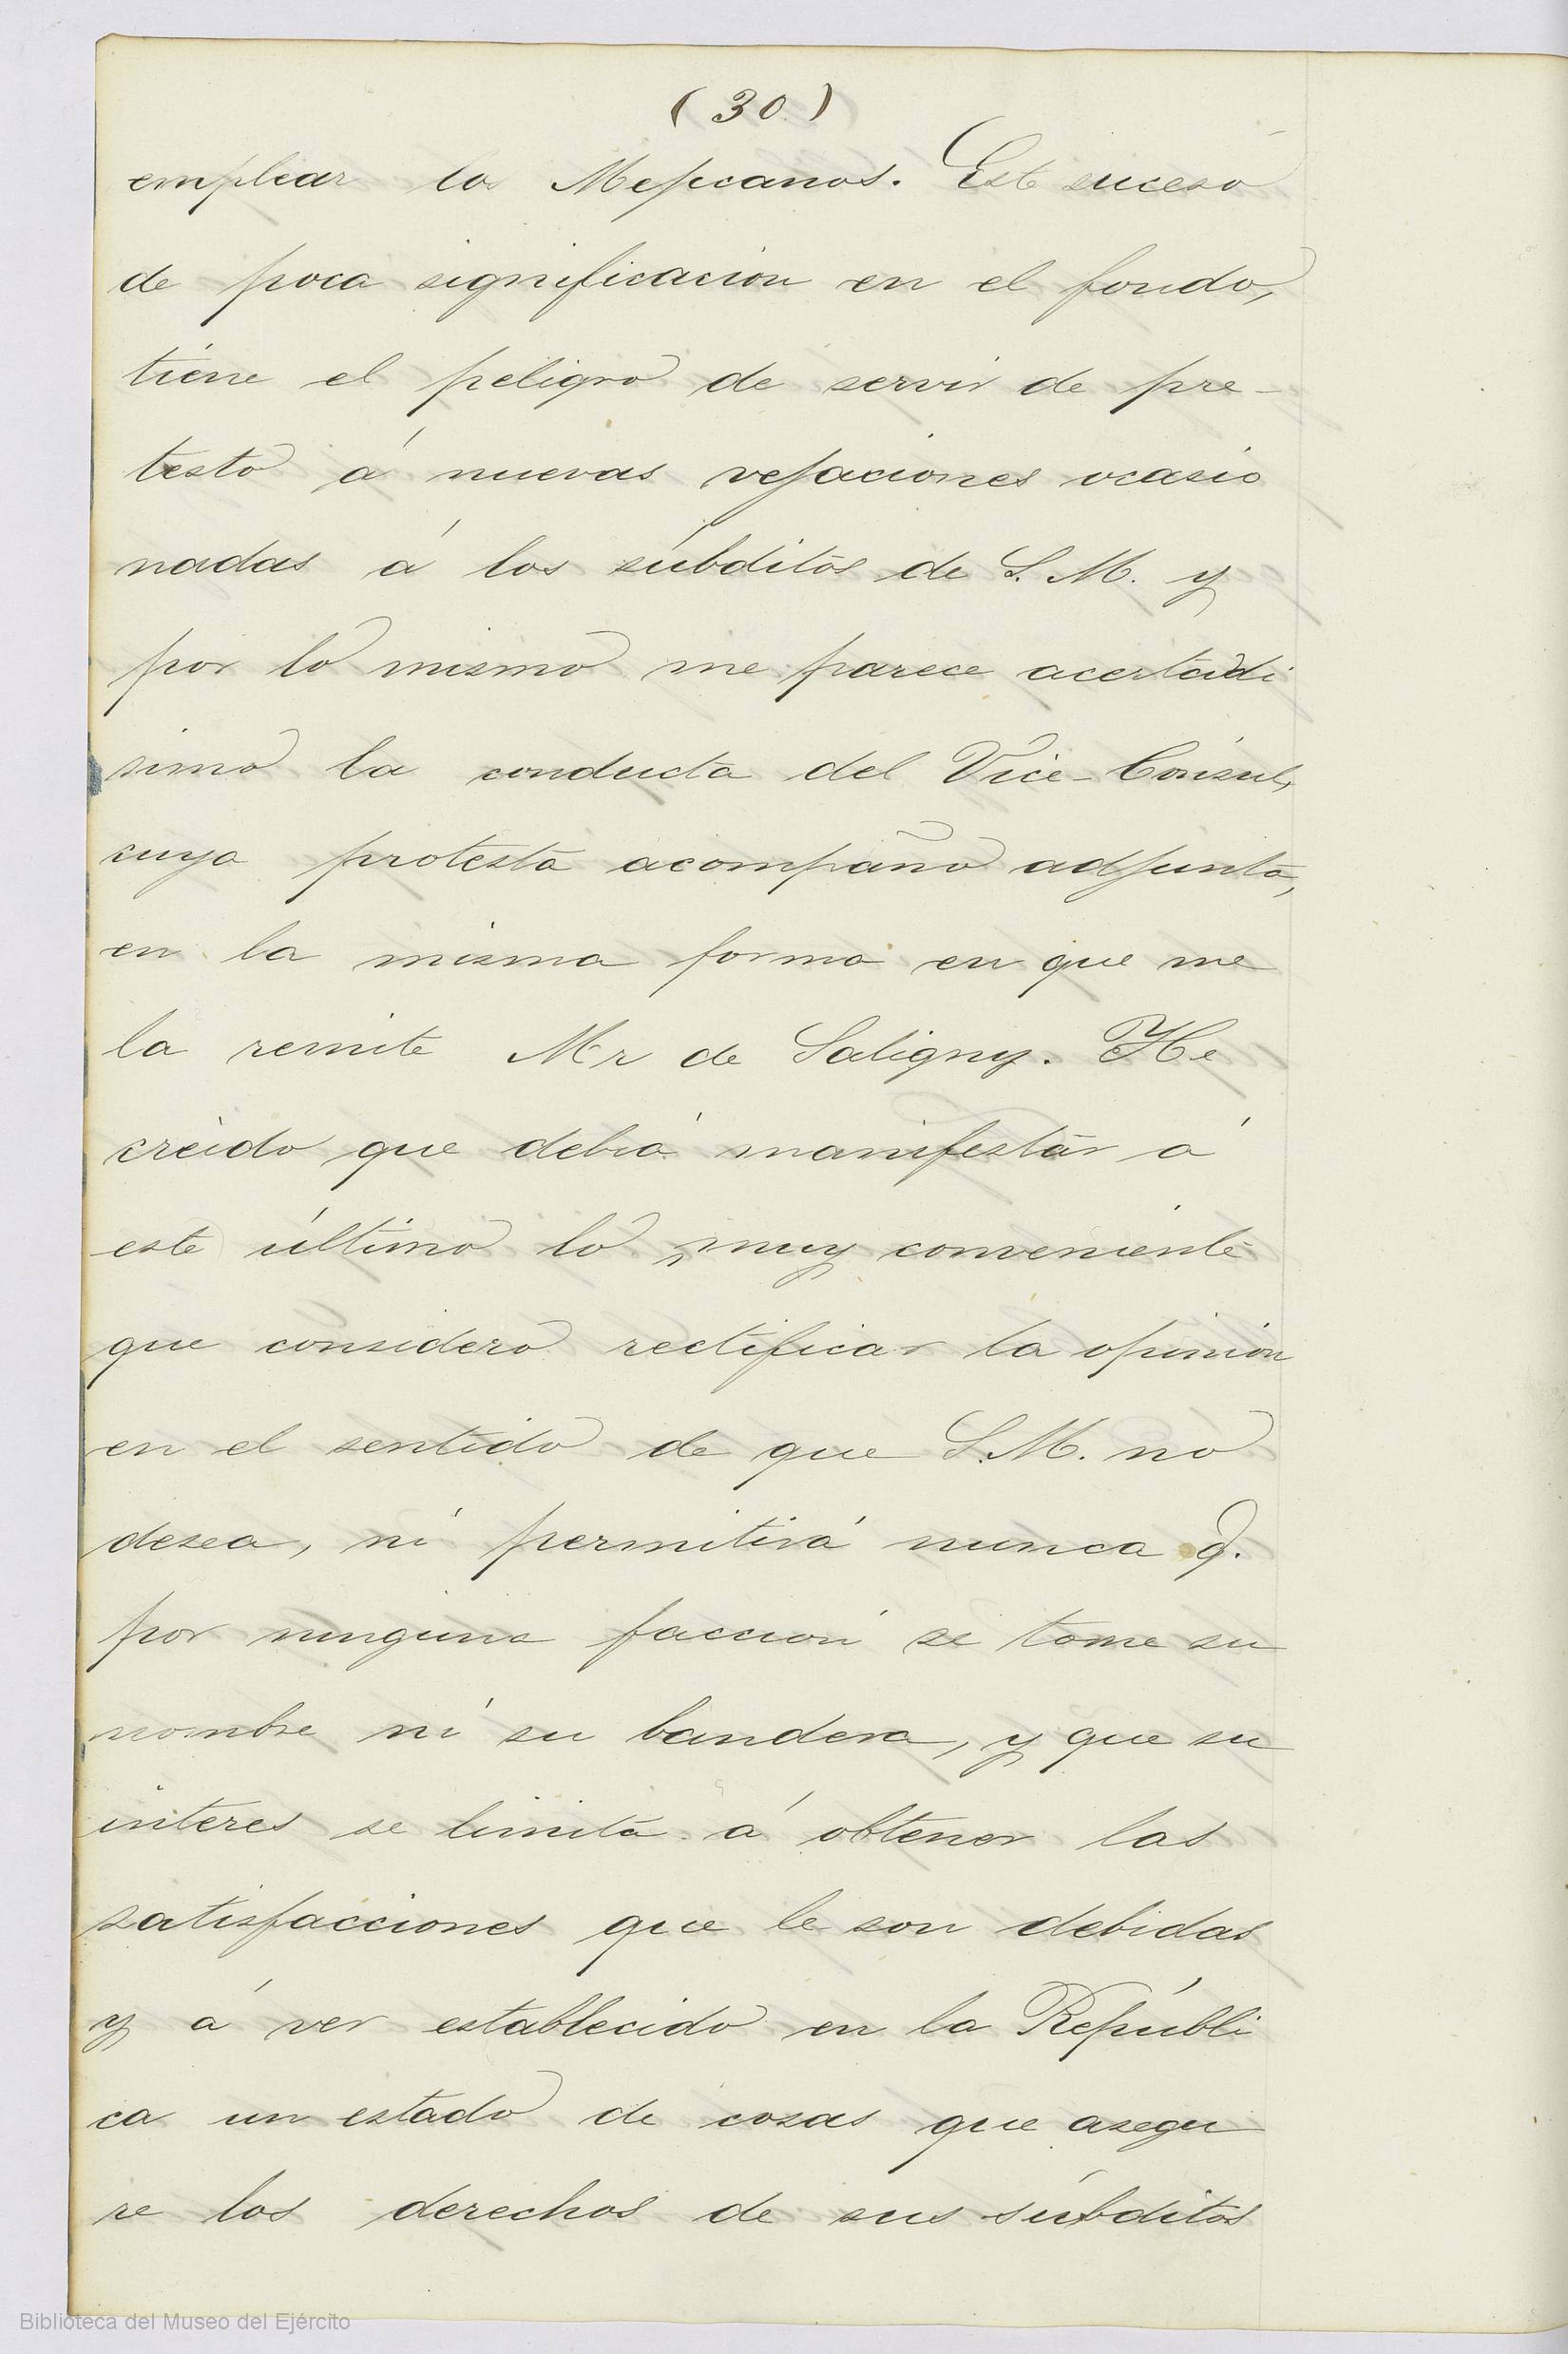 (30.)
emplear los Mejicanos. Este suceso
de poca significacion en el fondo,
tiene el peligro de servir de pre-
testo á nuevas vejaciones ocasio
nadas á los súbditos de S. M. y
por lo mismo me parece acertadi
simo la conducta del Vice-Cónsul,
cuya protesta acompaño adjunta,
en la misma forma en que me
la remite Mr de Saligny. He
creido que debia manifestar á
este último lo muy conveniente
que considero rectificar la opinion
en el sentido de que S. M. no
desea, ni permitirá nunca q.
por ninguna faccion se tome su
nombre ni su bandera, y que su
interes se limita á obtener las
satisfacciones que le son debidas
y á ver establecido en la Repúbli
ca un estado de cosas que asegu
re los derechos de sus súbditos
Biblioteca del Museo del Ejército